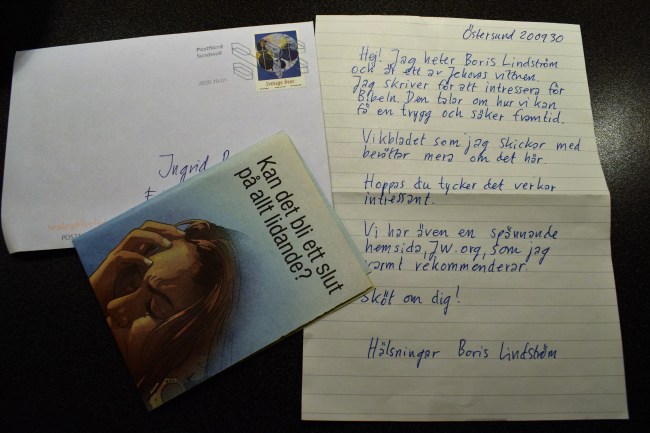 PostNord
Sverige Brev
Ingrid
Kan det bli ett slut
på allt lidande?
Östersund 200930
Hej! Jag heter Boris Lindström
och är ett av Jehovas vittnen.
Jag skriver för att intressera för
Bibeln. Den talar om hur vi kan
få en trygg och säker framtid.
Vikbladet som jag skickar med
berättar mera om det här.
Hoppas du tycker det verkar
intressant.
Vi har även en spännande
hemsida, JW.org, som jag
varmt rekommenderar.
Sköt om dig!
Hälsningar Boris Lindström